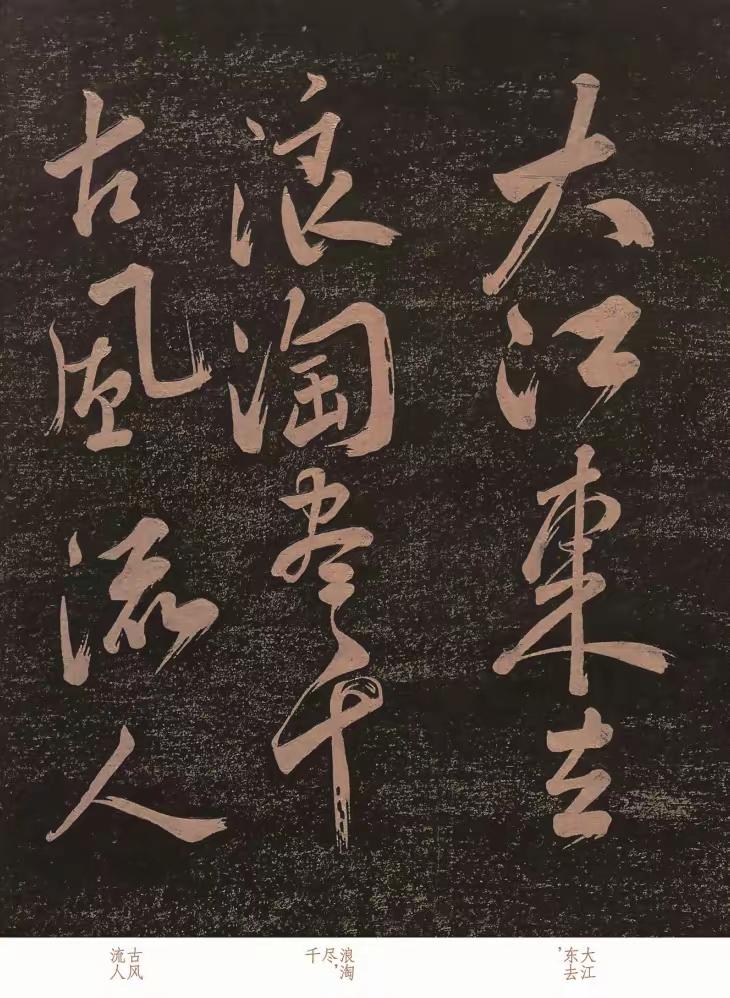 大江東去
浪淘尽千
古風流人
大江
东去,
浪淘
尽,千
古风
流人